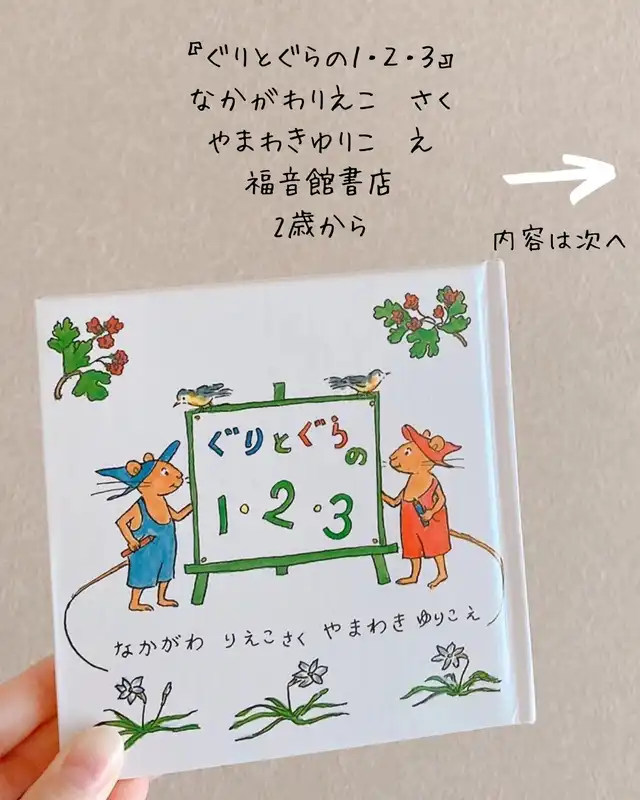 『ぐりとぐらの1・2・3』
なかがわりえこ　さく
やまわきゆりこ　え
福音館書店
2歳から
内容は次へ
ぐりとぐらの
1・2・3
なかがわ りえこ さく やまわき ゆりこ え